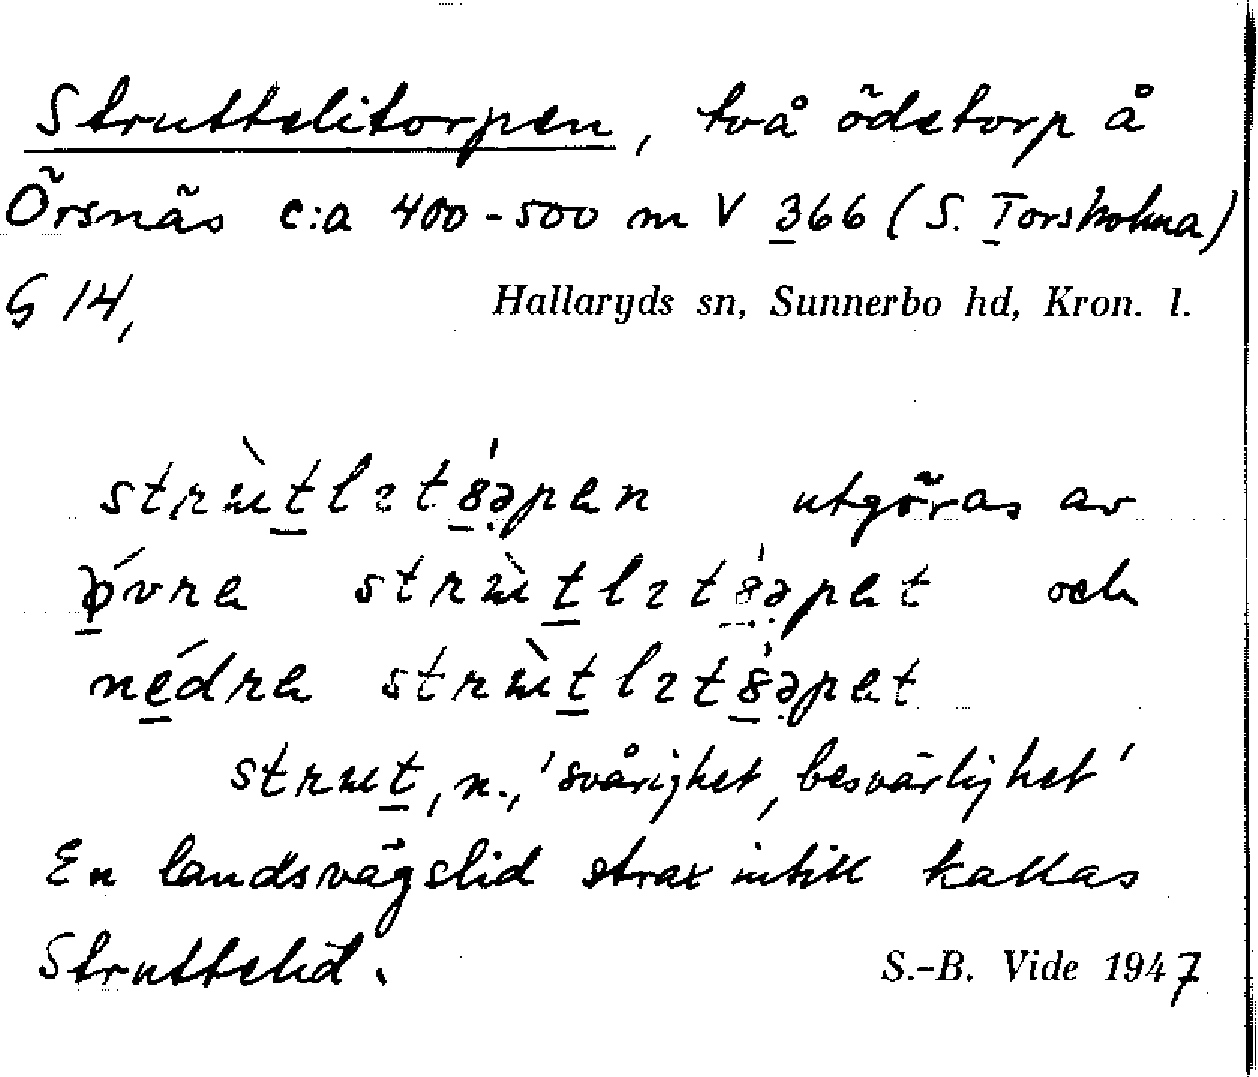 Struttelitorpen, två ödetorp å
Örsnäs c:a 400-500 m V 366 (S. Torsholma)
G 14,
Hallaryds sn, Sunnerbo hd, Kron. l.
utgöras av
och
nédra
strut, n., 'svårighet, besvärlighet'
En landsvägslid strax intill kallas
Struttelid.
S.-B. Vide 1947